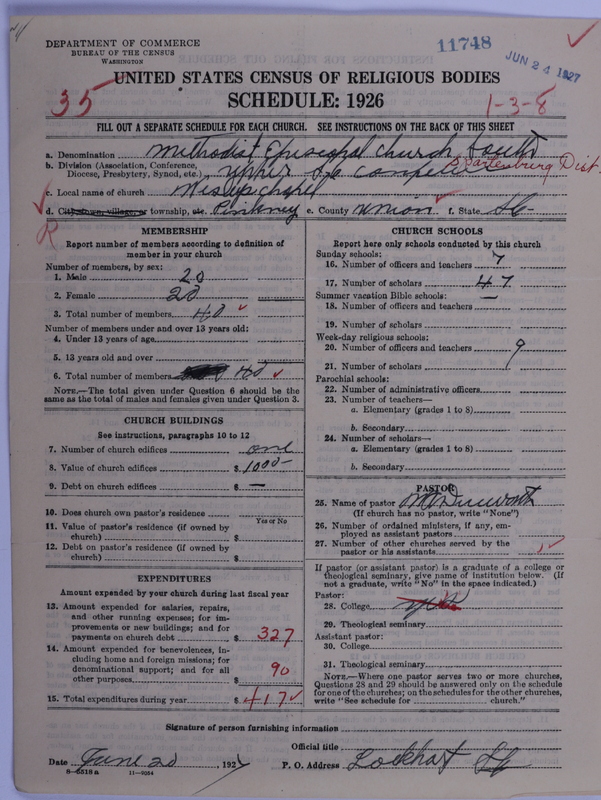 DEPARTMENT OF COMMERCE
BUREAU OF THE CENSUS
WASHINGTON
11748
JUN 24 1927
UNITED STATES CENSUS OF RELIGIOUS BODIES
SCHEDULE: 1926
35
1-3-8
FILL OUT A SEPARATE SCHEDULE FOR EACH CHURCH. SEE INSTRUCTIONS ON THE BACK OF THIS SHEET
a. Denomination Methodist Episcopal Church South
b. Division (Association, Conference, Diocese, Presbytery, Synod, etc.) Upper So Spartenburg Dist.
c. Local name of church chapel
d. City, town, village, or township, etc. Pinkney e. County Union f. State SC
R
MEMBERSHIP
Report number of members according to definition of
member in your church
Number of members, by sex:
1. Male 20
2. Female 20
3. Total number of members 40
Number of members under and over 13 years old:
4. Under 13 years of age
5. 13 years old and over
6. Total number of members 40
NOTE.—The total given under Question 6 should be the
same as the total of males and females given under Question 3.
CHURCH BUILDINGS
See instructions, paragraphs 10 to 12
7. Number of church edifices one
8. Value of church edifices $ 1000-
9. Debt on church edifices $ —
10. Does church own pastor's residence
Yes or No
11. Value of pastor's residence (if owned by
church) $
12. Debt on pastor's residence (if owned by
church) $
EXPENDITURES
Amount expended by your church during last fiscal year
13. Amount expended for salaries, repairs,
and other running expenses; for im-
provements or new buildings; and for
payments on church debt $ 327
14. Amount expended for benevolences, in-
cluding home and foreign missions; for
denominational support; and for all
other purposes $ 90
15. Total expenditures during year $ 417
CHURCH SCHOOLS
Report here only schools conducted by this church
Sunday schools:
16. Number of officers and teachers 7
17. Number of scholars 47
Summer vacation Bible schools:
18. Number of officers and teachers —
19. Number of scholars
Week-day religious schools:
20. Number of officers and teachers 9
21. Number of scholars
Parochial schools:
22. Number of administrative officers
23. Number of teachers—
a. Elementary (grades 1 to 8)
b. Secondary
24. Number of scholars—
a. Elementary (grades 1 to 8)
b. Secondary
PASTOR
25. Name of pastor
(If church has no pastor, write "None")
26. Number of ordained ministers, if any, em-
ployed as assistant pastors
27. Number of other churches served by the
pastor or his assistants
If pastor (or assistant pastor) is a graduate of a college or
theological seminary, give name of institution below. (If
not a graduate, write "No" in the space indicated.)
Pastor:
28. College
29. Theological seminary
Assistant pastor:
30. College
31. Theological seminary
NOTE.—Where one pastor serves two or more churches,
Questions 28 and 29 should be answered only on the schedule
for one of the churches; on the schedules for the other churches,
write "See schedule for church."
Signature of person furnishing information
Official title
Date June 20, 1927 P. O. Address Lockhart SC
8-5518a 11-9054